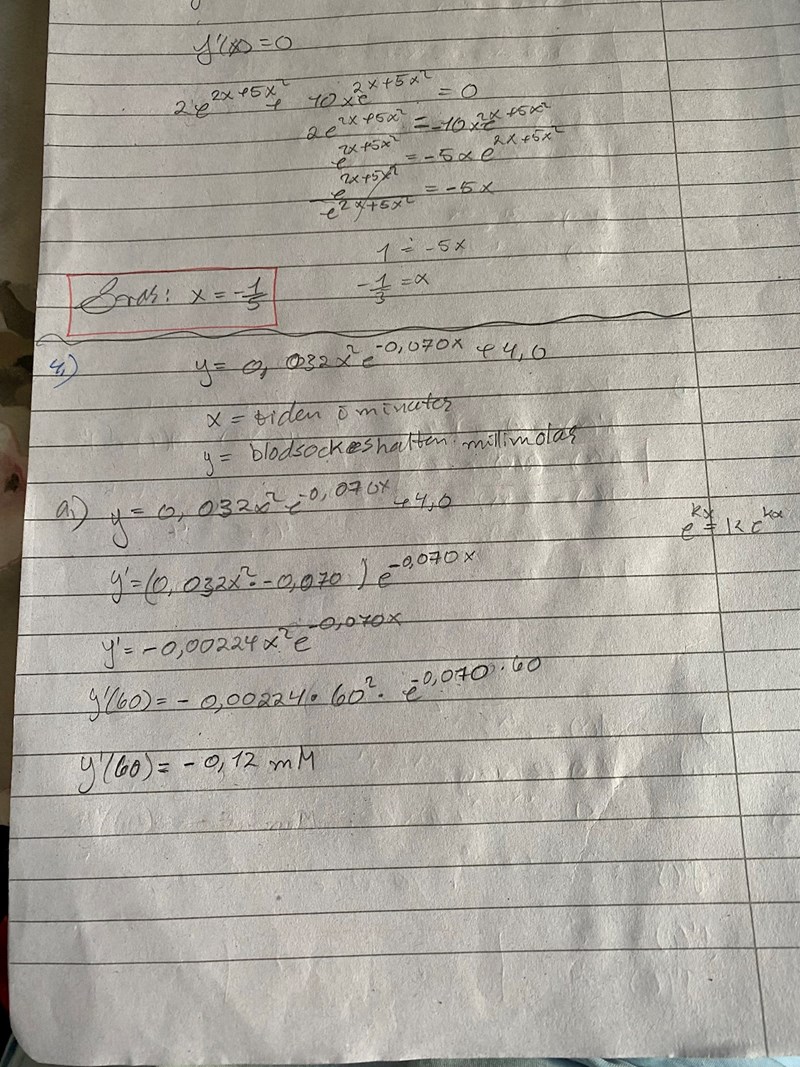 y'(x) = 0
2e^{2x+5x²} + 10xe^{2x+5x²} = 0
2e^{2x+5x²} = -10xe^{2x+5x²}
e^{2x+5x²} = -5xe^{2x+5x²}
e^{2x+5x²}/e^{2x+5x²} = -5x
1 = -5x
-1/3 = x
Svar: x = -1/5
4.)
y = 0,032x²e^{-0,070x} + 4,0
x = tiden i minuter
y = blodsockershalten millimolar
a.) y = 0,032x²e^{-0,070x} + 4,0
e^{kx} = ke^{kx}
y' = (0,032x²·-0,070)e^{-0,070x}
y' = -0,00224x²e^{-0,070x}
y'(60) = -0,00224·60²·e^{-0,070·60}
y'(60) = -0,12 mM